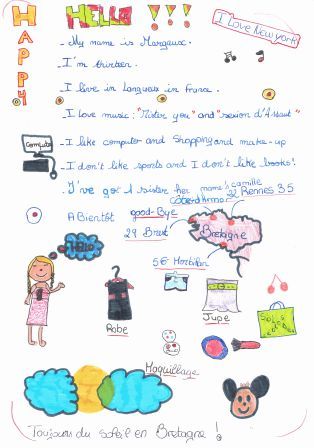 HELLO!!!
HAPPY
I Love New york
- My name is Margaux.
- I'm thirteen.
- I live in Langueux in France.
- I love music: "Mister you" and "sexion d'Assaut"
Computer
- I like computer and Shopping and make-up
- I don't like sports and I don't like books!
- I've got 1 sister her name's camille
22 Rennes 35
A Bientôt good-Bye
29 Brest
Bretagne
Hello
56 Morbihan
Robe
Jupe
Maquillage
Toujours du soleil en Bretagne!